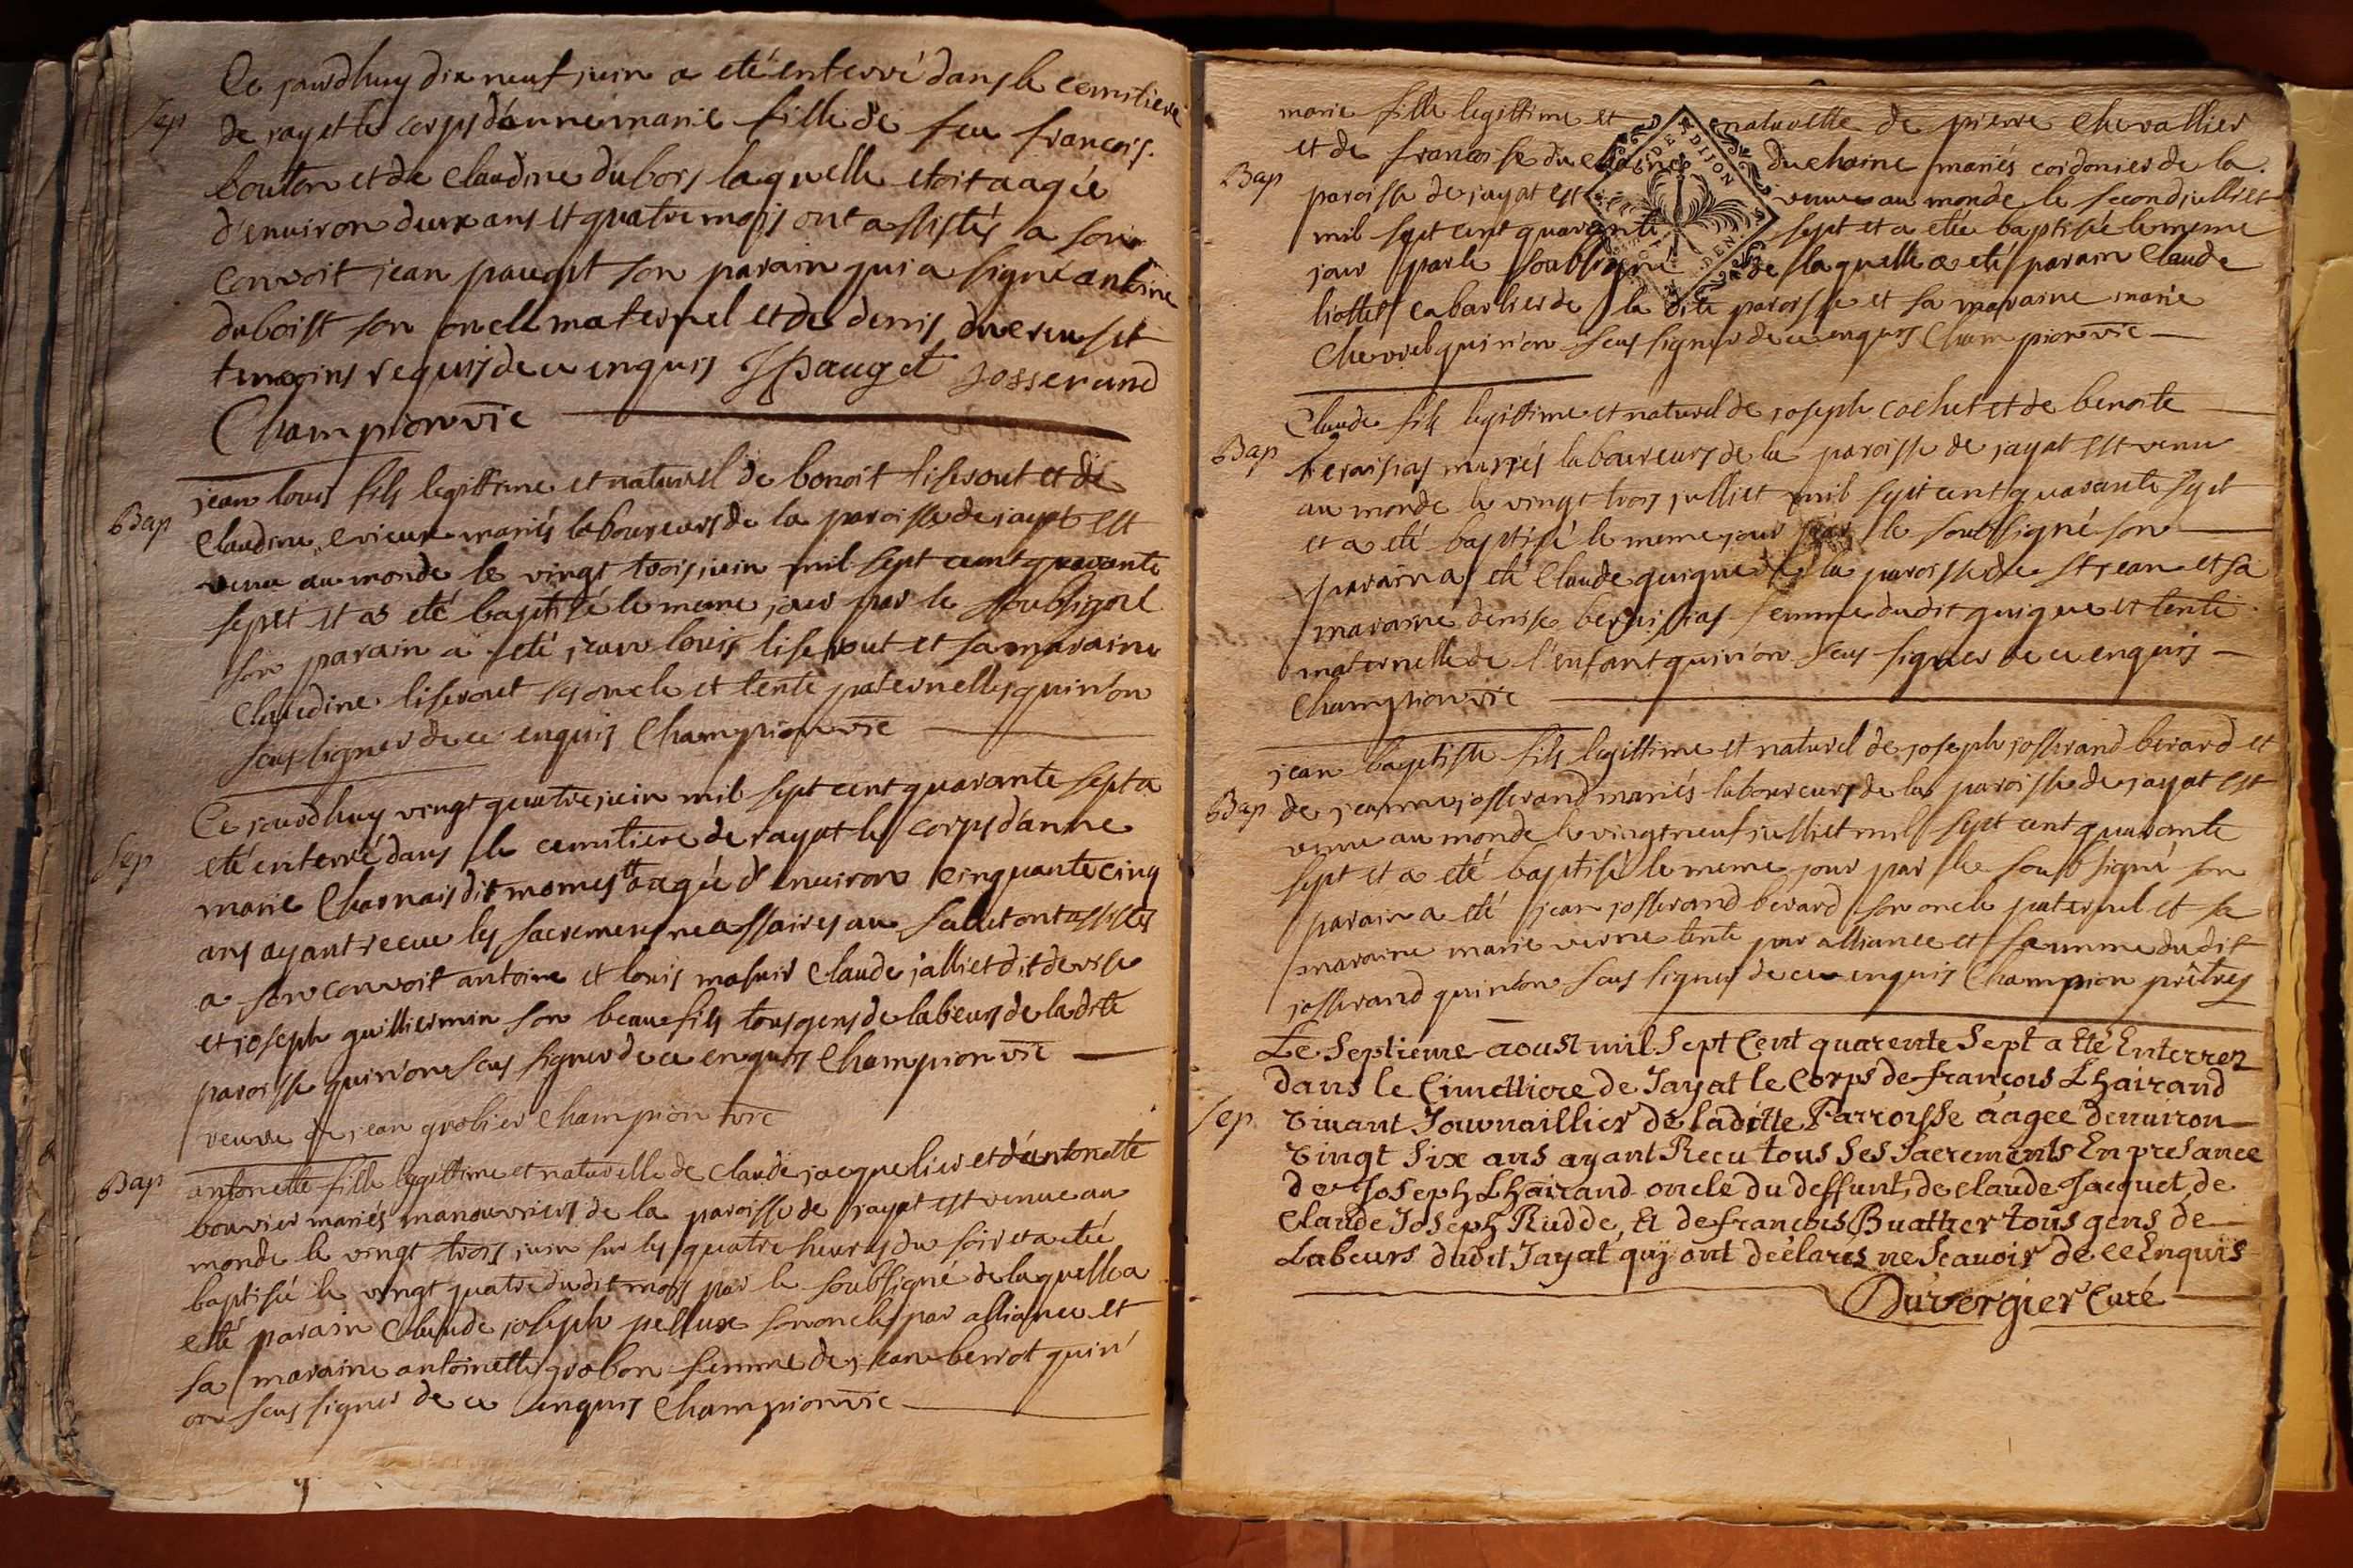 Ce jourdhuy dix neuf juin a eté enterré dans le cemitiere
Sep
de jayat le corps d'anne marie fille de feu francois
bouton et de Claudine dubois laquelle etoit aagée
d'environ deux ans et quatre mois ont assistés a son
convoit jean pauget son parain qui a signé antoine
duboist son oncle maternel et de denis ducreuset
temoins requis de ce enquis JPauget Josserand
Champion vic
jean louis fils legittime et naturel de benoit liserout et de
Bap
Claudine evieux mariés laboureurs de la paroisse de jayat est
venu au monde le vingt trois juin mil sept cent quarante
sept et a eté baptisé le meme jour par le soubsigné
son parain a eté jean louis liserout et sa maraine
Claudine liserout ses oncle et tente paternelles qui n'on
sceus signer de ce enquis Champion vic
Ce jourdhuy vingt quatre juin mil sept cent quarante sept a
Sep
eté enterré dans le cemitiere de jayat le corps d'anne
marie Charnais dit momest aagée d'environ cinquante cinq
ans ayant recue les sacremens necessaires au salut ont assistés
a son convoit antoine et louis masuir Claude jalliet dit devise
et joseph guilliermin son beau fils tous gens de labeurs de la dite
paroisse qui n'on sceus signer de ce enquis Champion vic
veuve de jean grobier Champion vic
Bap
antonette fille legittime et naturelle de Claude jacquelier et d'antonette
bouvier mariés manouvriers de la paroisse de jayat est venue au
monde le vingt trois juin sur les quatre heures du soir et a eté
baptisée le vingt quatre du dit mois par le soubsigné de laquelle a
eté parain Claude joseph pelleux son oncle par alliance et
sa maraine antoinette grobon femme de jean berrot qui n'
on sceus signer de ce enquis Champion vic
marie fille legittime et naturelle de pierre Chevallier
DE DIJON
et de francoise duchaine duchaine mariés cordonier de la
Bap
paroisse de jayat est venue au monde le second julliet
mil sept cent quarante sept et a etée baptisée le meme
jour par le soubsigné de laquelle a eté parain Claude
liottet cabartier de la dite paroisse et sa maraine marie
Chevrel qui n'on sceus signer de ce enquis Champion vic
Claude fils legittime et naturel de joseph cochet et de benoite
Bap
beraisias mariés laboureurs de la paroisse de jayat est venu
au monde le vingt trois julliet mil sept cent quarante sept
et a eté baptisé le meme jour par le soubsigné son
parain a eté Claude guigue de la paroisse de st jean et sa
maraine denise beraisias femme dudit guigue et tente
maternelle de l'enfant qui n'on sceus signer de ce enquis
Champion vic
jean baptiste fils legittime et naturel de joseph josserand berard et
Bap
de jeanne josserand mariés laboureurs de la paroisse de jayat est
venu au monde le vingt neuf julliet mil sept cent quarante
sept et a eté baptisé le meme jour par le soubsigné son
parain a eté jean josserand berard son oncle paternel et sa
maraine marie verne tente par alliance et famme du dit
josserand qui n'on sceus signer de ce enquis Champion prêtres
Le Septieme aoust mil Sept Cent quarente Sept a Eté Enterrez
dans le Cimettiere de Jayat le Corps de françois Lhairand
Sep
vivant Journaillier de laditte Parroisse aagee denviron
vingt Six ans ayant Recu tous Ses Sacrements En presance
de Joseph Lhairand oncle du deffunt, de claude Jacquet, de
Claude Joseph Rudde, Et de françois Buathier tous gens de
Labeurs dudit Jayat quy ont declarés ne Scavoir de ce Enquis
Duvergier Curé